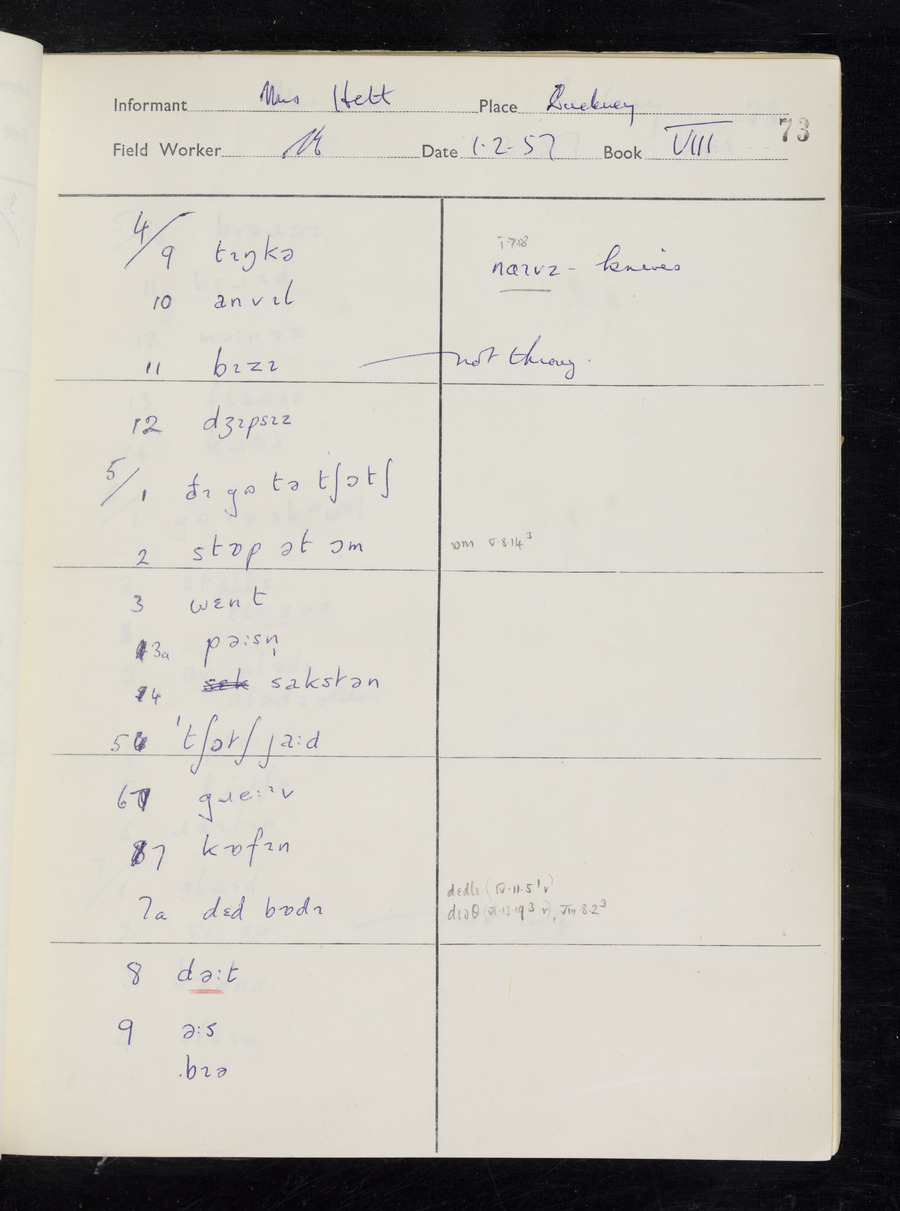 Informant Mrs Hett Place Cuckney
73
Field Worker Date 1·2·57 Book VIII
4/9 tɪŋkə
I·7·18
naɪvz - knives
10 anvɪl
11 bɪzɪ not throng.
12 dʒɪpsɪz
5/1 ðɪ go tə tʃətʃ
2 stɒp ət əm
əm V·8·14³
3 wɛnt
3a pə:sn̩
4 sakstən
5 'tʃətʃ ja:d
6 gɹe:ɪv
7 kɒfɪn
7a dɛd bɒdɪ
dɛdlɪ (IV·11·5¹v)
dɪəθ (VI·13·19³ v), VIII·8·2³
8 də:t
9 ə:s
.bɪə